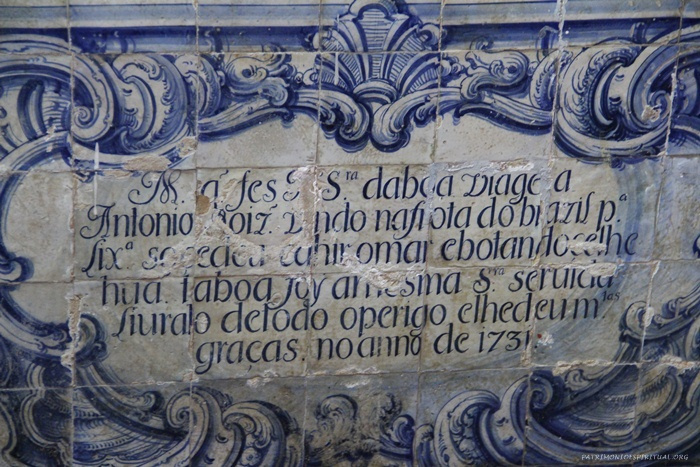 M. fes N. Sra. da boa viagem a
Antonio Roiz. vindo na frota do brazil pa.
lixa. socedeu cahir o mar e botandocelhe
hua. taboa foy a mesma Sra. servida
livralo de todo o perigo elhe deu mtas
graças. no anno de 1731
PATRIMONIOESPIRITUAL.ORG